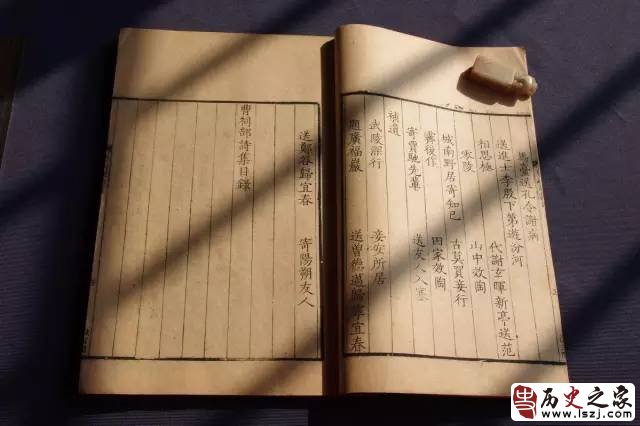 馬臺送孔令謝病
送進士李殷下第遊汾河
相思極 代謝玄暉新亭送范
零陵 山中效陶
城南野居寄知己 古莫買妾行
霽後作 田家效陶
寄賈馳先輩 送友人入塞
補遺
武陵深行 妾安所居
題廣福巖 送曾德邁歸寧宜春
送鄭谷歸宜春 寄陽朔友人
曹祠部詩集目錄
历史之家
www.lszj.com